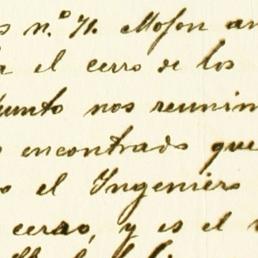 s n.º 71. Mojon an
a el cerro de los
punto nos reunim
encontrado que
o el Ingeniero
cerro, y es el